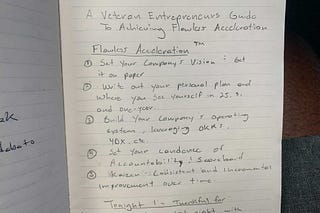 A Veteran Entrepreneurs Guide
To Achieving Flawless Acceleration
Flawless Acceleration™
① Set Your Company's Vision: Get
it on paper
② Write out your personal plan and
where you see yourself in 25, 5,
and one-year.
③ Build Your Company's operating
system, leveraging OKRs,
4DX, etc.
④ Set Your Cadence of
Accountability: Scoreboard
⑤ Kaizen: Consistent and Incremental
improvement over time.
Tonight I'm Thankful for